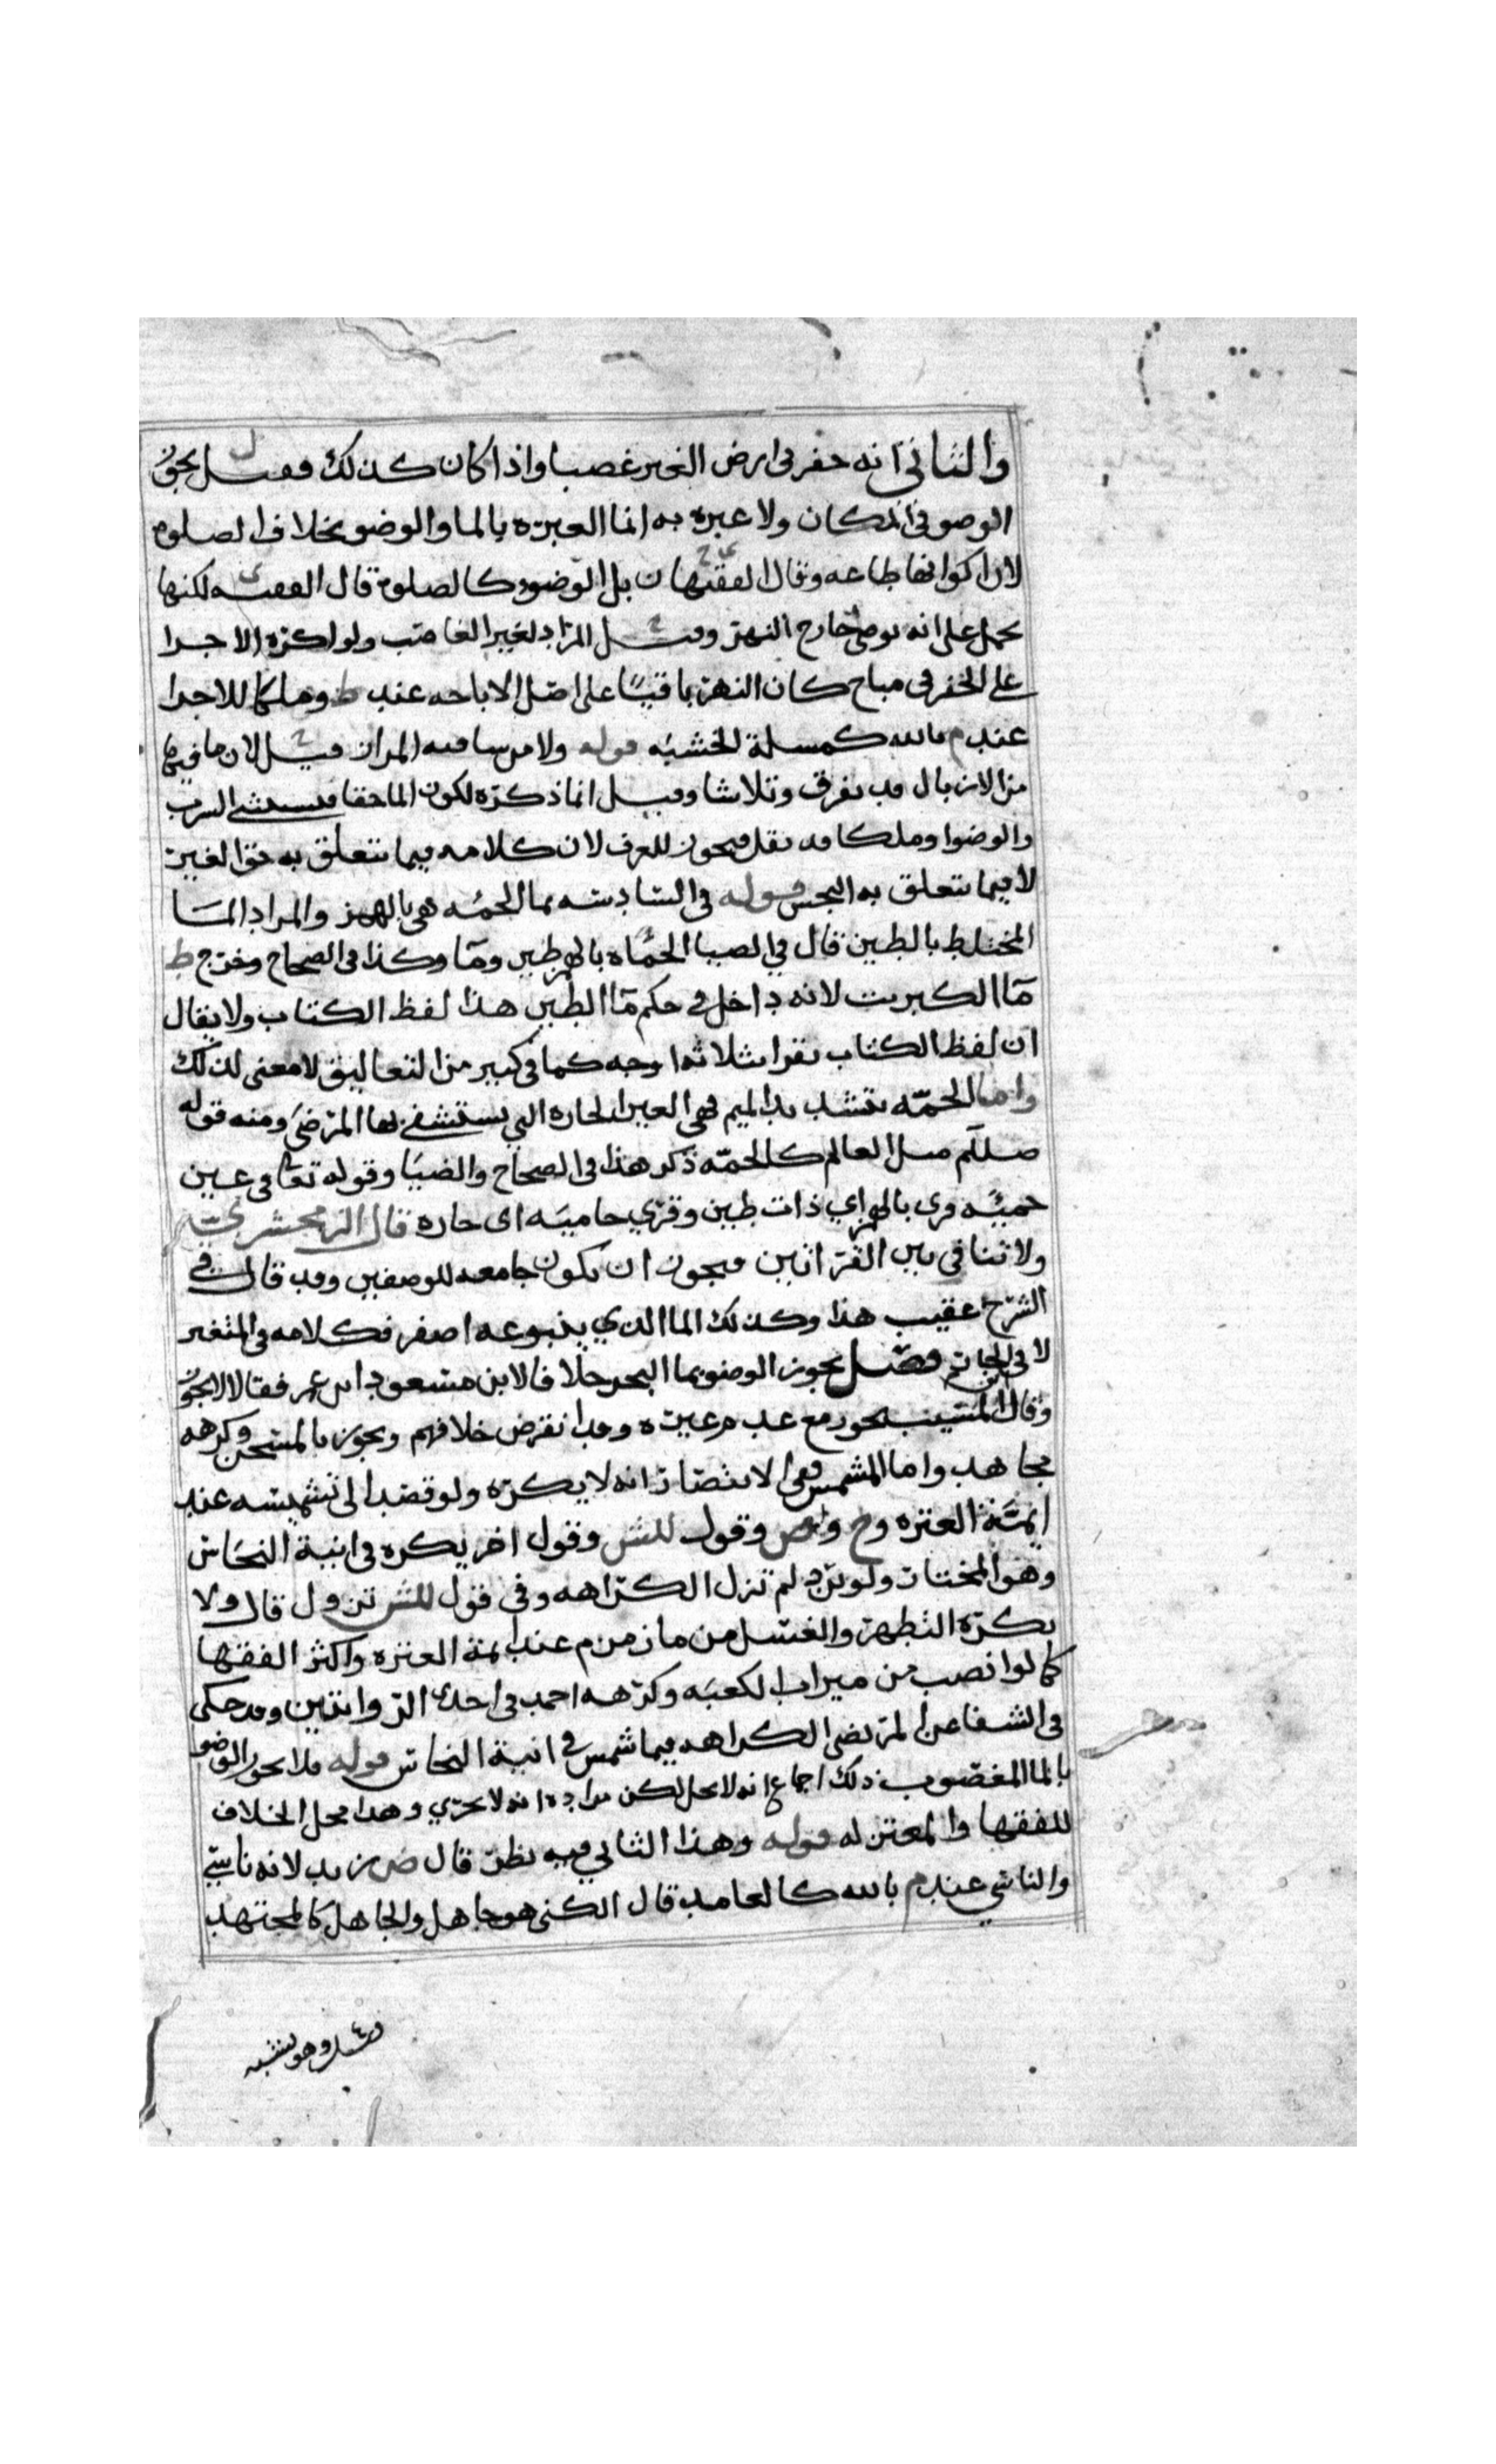 والثاني انه حفر في ارض الغير غصبا واذا كان كذلك فقيل يجوز
الوضو في المكان ولا عبره به انما العبرة بالما والوضو بخلاف الصلوه
لان اكوانها طاعه وقال الفقيهان بل الوضوء كالصلوة قال الفقيه لكنها
تحمل على انه توضى خارج النهر وقيل المراد لغير الغاصب ولو اكره الاجرا
على الحفر في مباح كان النهر باقيًا على اصل الاباحه عند ط وملكا للاجرا
عند م بالله كمسلة الخشبه قوله ولا من ساقيه المدان قيل لان ما فيها
من الازبال قد تفرق وتلاشا وقيل انما ذكره لكون الما حقا فيستثنى الشرب
والوضوا وملكا قد نقل فيجوز للعرف لان كلامه فيما يتعلق به حق الغير
لا فيما يتعلق به النجس قوله في السادسه بما الحمئه هي بالهمز والمراد الما
المختلط بالطين قال في الضيا الحمأه بالهمز طين وما وكذا في الصحاح وخرج ط
مآ الكبريت لانه داخل في حكم مآ الطين هذا لفظ الكتاب ولا يقال
ان لفظ الكتاب يقرا بثلاثه اوجه كما في كثير من التعاليق لا معنى لذلك
واما الحمّه بتشديد الميم فهي العين الحاره التي يستشفى بها المرضى ومنه قوله
صللم مثل العالم كالحمّه ذكر هذا في الصحاح والضيا وقوله تعا في عين
حميئه قرى بالهمز اي ذات طين وقري حاميه اى حاره قال الزمخشري
ولا تنافي بين القرائين فيجوز ان تكون جامعه للوصفين وقد قال في
الشرح عقيب هذا وكذلك الما الذي ينبوعه اصفر فكلامه في المتغير
لا في الجاري ثم فصل يجوز الوضو بما البحر خلافا لابن مسعود وابن عمر فقالا لا يجوز
وقال ابن المسيب يجوز مع عدم غيره وقد انقرض خلافهم ويجوز بالمسخن وكرهه
مجاهد واما المشمس ففي الانتصار انه لا يكره ولو قصد الى تشميسه عند
ايمة العتره وح وص وقول للش وقول اخر يكره في انية النحاس
وهو المختار ولو برد لم تزل الكراهه وفي قول للش تزول قال ولا
يكره التطهر والغسل من ما زمزم عند ايمة العتره واكثر الفقها
كما لو انصب من ميزاب الكعبه وكرهه احمد في احدى الروايتين وقد حكى
في الشفا عن المرتضى الكراهه فيما شمس في انية النحاس قوله فلا يجوز الوضو
بالما المغصوب ذلك اجماع انه لا يحل لكن مراده انه لا يجزي وهذا محل الخلاف
للفقها والمعتزله قوله وهذا الثاني فيه نظر قال ض زيد لانه ناسي
والناسي عند م بالله كالعامد قال الكني هو جاهل والجاهل كالمجتهد